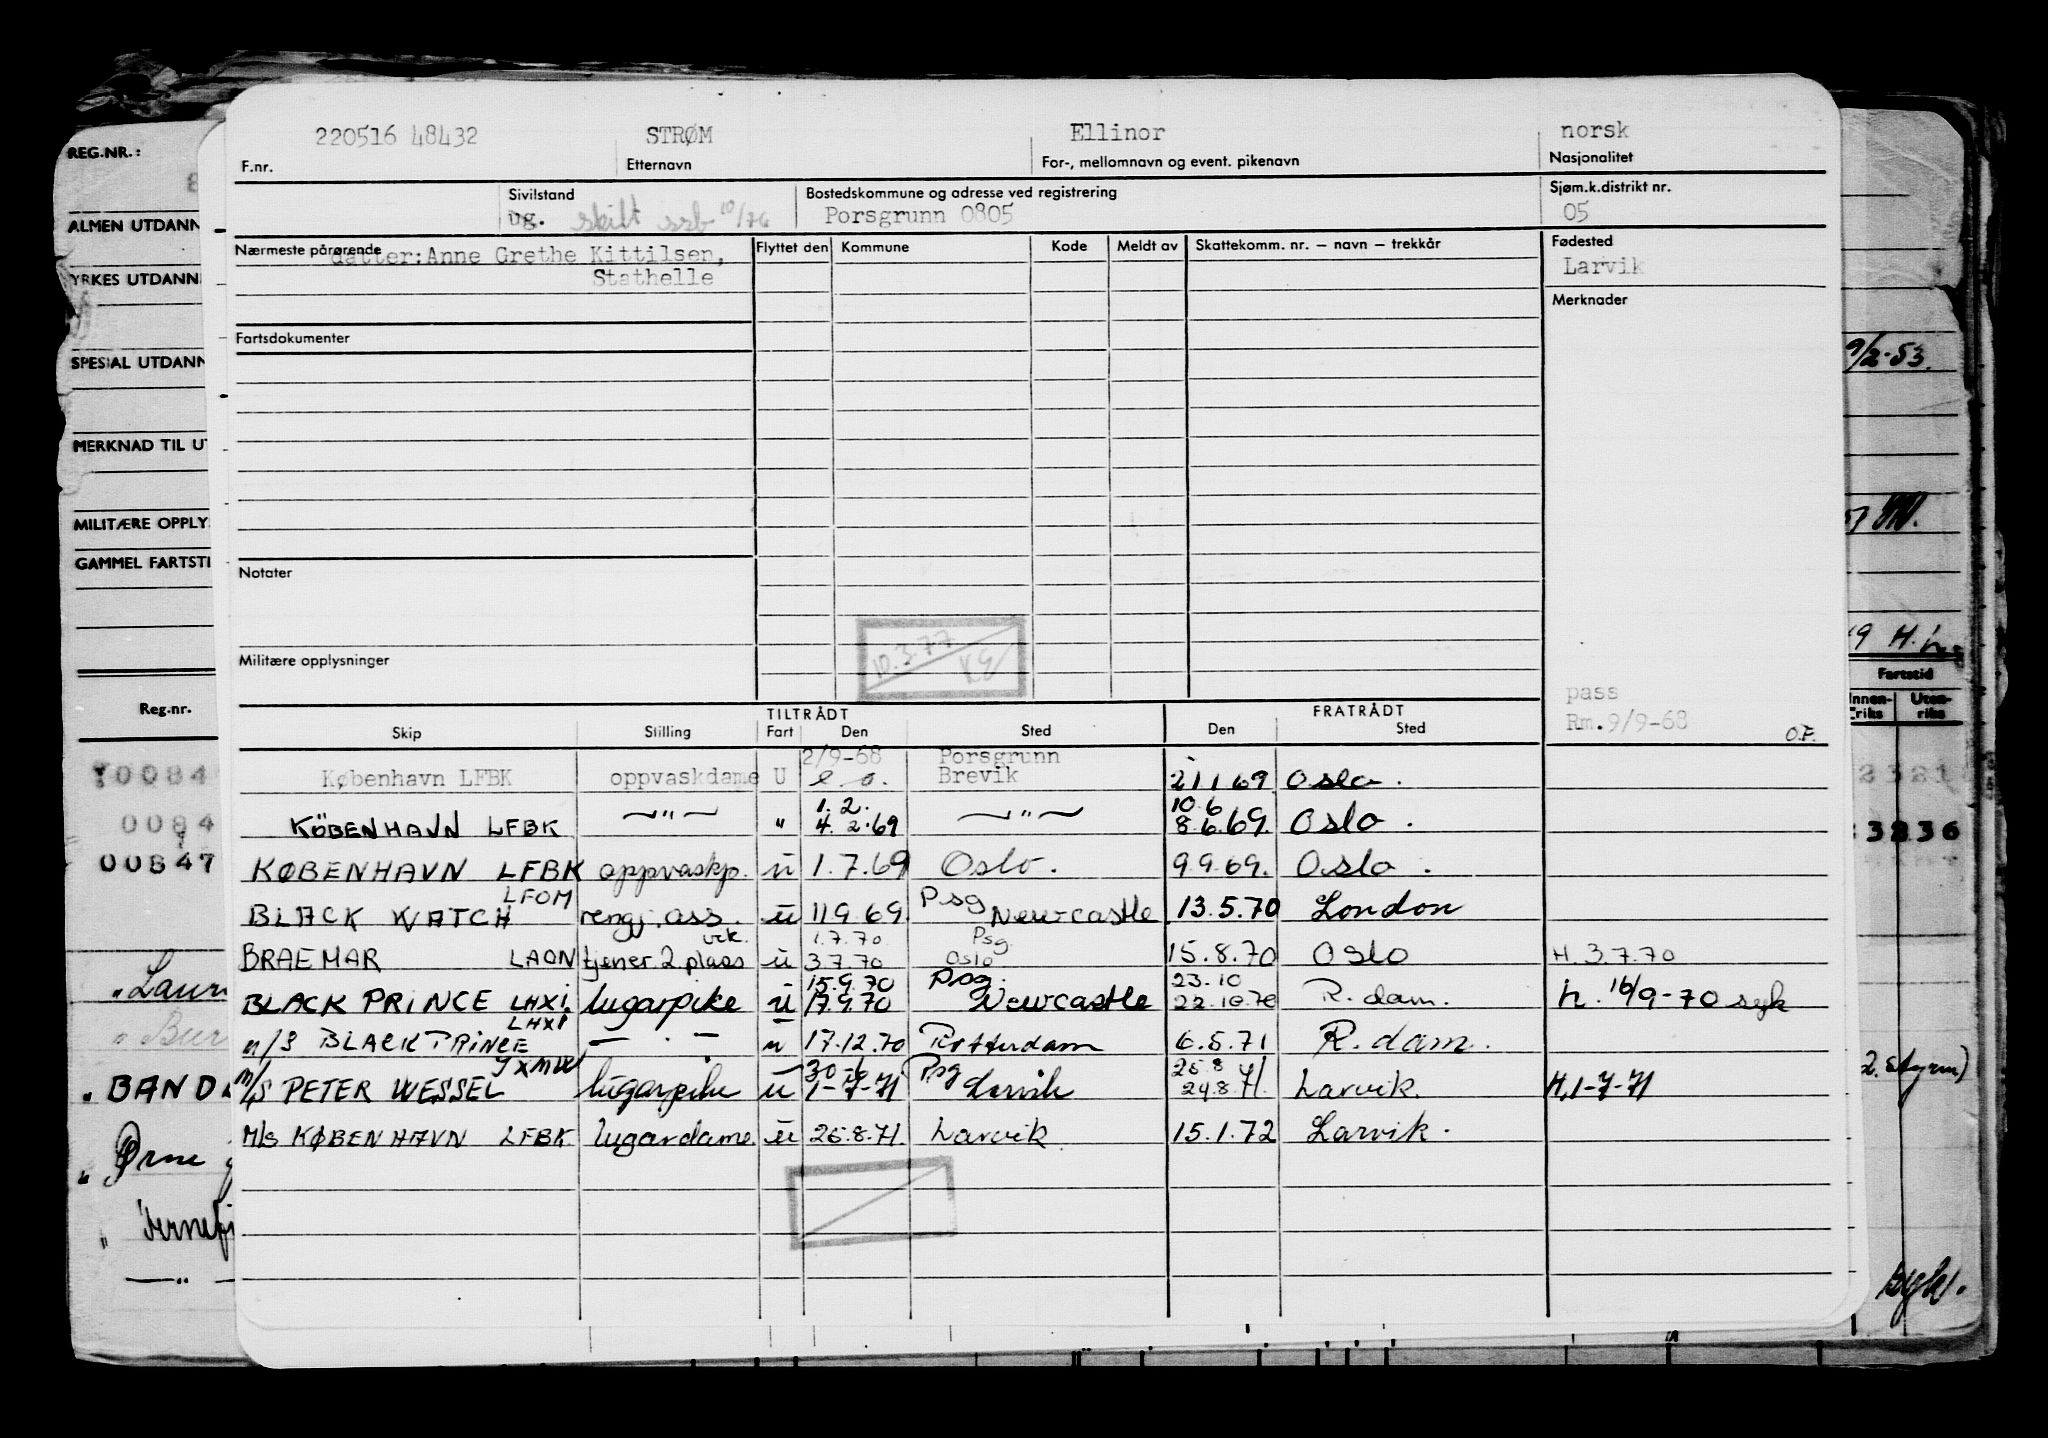 220516 48432 STRØM Ellinor norsk
F.nr. Etternavn For-, mellomnavn og event. pikenavn Nasjonalitet
REG.NR.:
Sivilstand Bostedskommune og adresse ved registrering Sjøm.k.distrikt nr.
ug. skilt ssb 10/76 Porsgrunn 0805 05
ALMEN UTDANN
Nærmeste pårørende Flyttet den Kommune Kode Meldt av Skattekomm. nr. – navn – trekkår Fødested
datter: Anne Grethe Kittilsen, Larvik
Stathelle
YRKES UTDANN
Merknader
Fartsdokumenter
SPESIAL UTDANN 9/2-53.
MERKNAD TIL UT
MILITÆRE OPPLY
GAMMEL FARTSTI
Notater
10.3.77
KG
Militære opplysninger
Fartstid
pass
Reg.nr. Innen-riks Uten-riks
Rm.9/9-68 O.F.
TILTRÅDT FRATRÅDT
Skip Stilling Fart Den Sted Den Sted
2/9-68 Porsgrunn
København LFBK oppvaskdame U Brevik 21 1 69 Oslo.
1. 2. 10 6
KÖBENHAVN LFBK —"— " 4. 2.69 —"— 8.6.69. Oslo.
KØBENHAVN LFBK oppvaskp. u 1.7.69 Oslo. 9.9.69. Oslo.
LFOM Psg
BLACK WATCH rengj. ass. u 11 9 69 Newcastle 13.5.70 London
vik. 1.7.70 Psg.
BRAEMAR LAON tjener 2 plass u 3.7.70 Oslo 15.8.70 Oslo H. 3.7.70
15.9.70 Psg. 23.10
BLACK PRINCE LHXI lugarpike u 17.9.70 Newcastle 22.10.70 R.dam. h. 16/9-70 syk
LHXI
m/S BLACK PRINCE — . — u 17.12.70 Rotterdam 6.5.71 R.dam.
30-6 Psg 25.8
M/S PETER WESSEL lugarpike u 1-7-71 Larvik 24.8.71. Larvik. H.1-7-71
M/s KØBENHAVN LFBK lugardame u 26.8.71. Larvik 15.1.72 Larvik.
0084
00847
3236
BAND
2. styrm)
Ørne